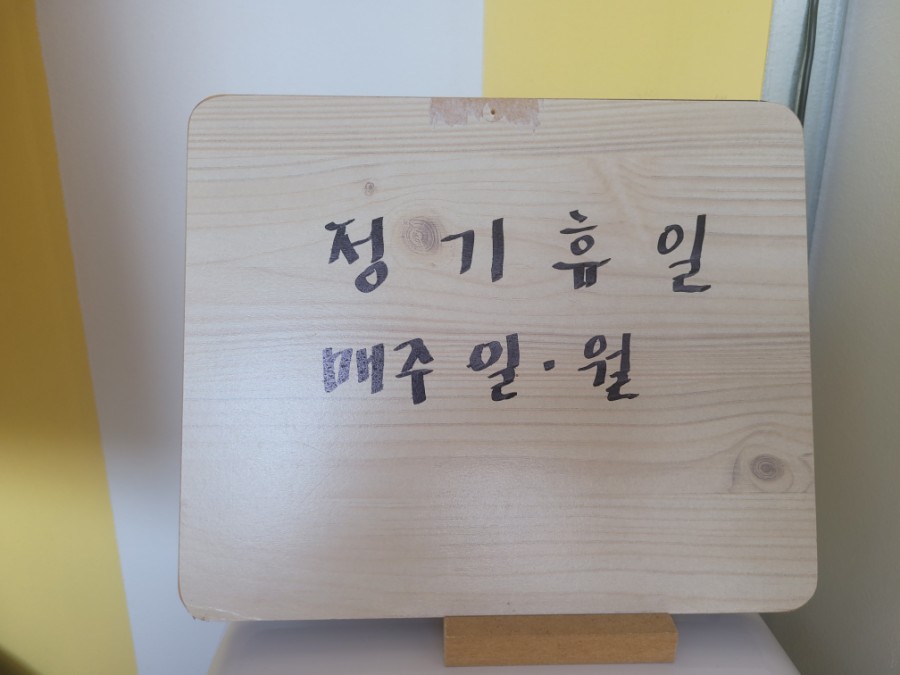 정기휴일
매주 일·월